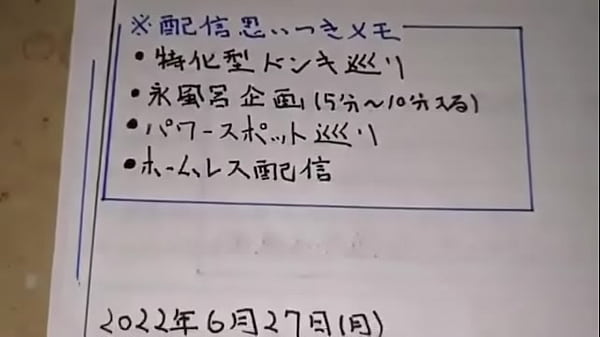 ※配信思いつきメモ
・特化型ドンキ巡り
・水風呂企画(5分〜10分入る)
・パワースポット巡り
・ホームレス配信
2022年6月27日(月)